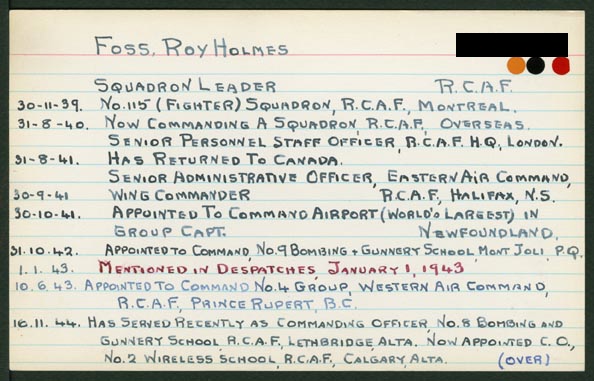 Foss, Roy Holmes
Squadron Leader R.C.A.F.
30-11-39. No.115 (Fighter) Squadron, R.C.A.F., Montreal.
31-8-40. Now Commanding A Squadron, R.C.A.F., Overseas.
Senior Personnel Staff Officer, R.C.A.F. H.Q., London.
31-8-41. Has Returned To Canada.
Senior Administrative Officer, Eastern Air Command,
30-9-41 Wing Commander R.C.A.F., Halifax, N.S.
30-10-41. Appointed To Command Airport (World's Largest) in
Group Capt. Newfoundland.
31.10.42. Appointed to Command, No.9 Bombing + Gunnery School, Mont Joli, P.Q.
1.1.43. Mentioned in Despatches, January 1, 1943
10.6.43. Appointed to Command No.4 Group, Western Air Command,
R.C.A.F., Prince Rupert, B.C.
16.11.44. Has Served Recently as Commanding Officer, No.8 Bombing and
Gunnery School, R.C.A.F., Lethbridge, Alta. Now Appointed C.O.,
No.2 Wireless School, R.C.A.F., Calgary, Alta. (Over)